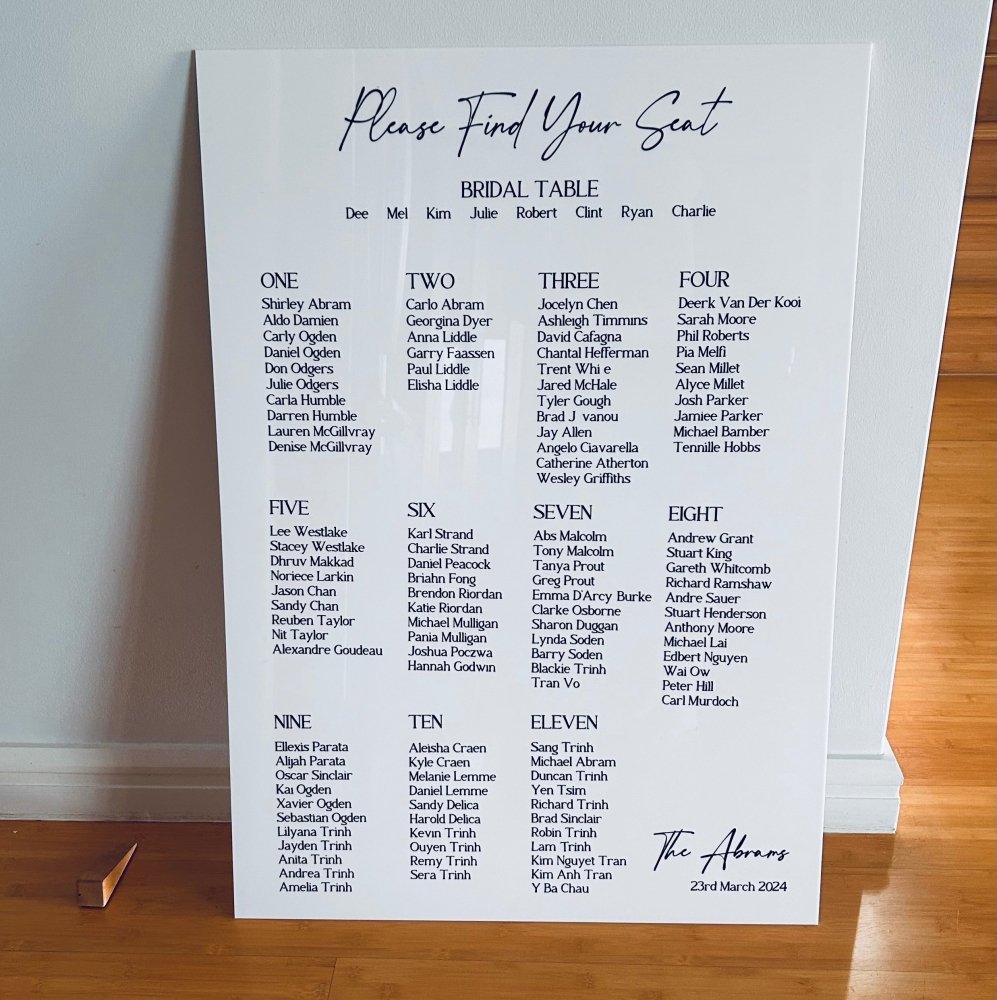 Please Find Your Seat
BRIDAL TABLE
Dee Mel Kim Julie Robert Clint Ryan Charlie
ONE
Shirley Abram
Aldo Damien
Carly Ogden
Daniel Ogden
Don Odgers
Julie Odgers
Carla Humble
Darren Humble
Lauren McGillvray
Denise McGillvray
TWO
Carlo Abram
Georgina Dyer
Anna Liddle
Garry Faassen
Paul Liddle
Elisha Liddle
THREE
Jocelyn Chen
Ashleigh Timmins
David Cafagna
Chantal Hefferman
Trent Whi e
Jared McHale
Tyler Gough
Brad J vanou
Jay Allen
Angelo Ciavarella
Catherine Atherton
Wesley Griffiths
FOUR
Deerk Van Der Kooi
Sarah Moore
Phil Roberts
Pia Melfi
Sean Millet
Alyce Millet
Josh Parker
Jamiee Parker
Michael Bamber
Tennille Hobbs
FIVE
Lee Westlake
Stacey Westlake
Dhruv Makkad
Noriece Larkin
Jason Chan
Sandy Chan
Reuben Taylor
Nit Taylor
Alexandre Goudeau
SIX
Karl Strand
Charlie Strand
Daniel Peacock
Briahn Fong
Brendon Riordan
Katie Riordan
Michael Mulligan
Pania Mulligan
Joshua Poczwa
Hannah Godwin
SEVEN
Abs Malcolm
Tony Malcolm
Tanya Prout
Greg Prout
Emma D'Arcy Burke
Clarke Osborne
Sharon Duggan
Lynda Soden
Barry Soden
Blackie Trinh
Tran Vo
EIGHT
Andrew Grant
Stuart King
Gareth Whitcomb
Richard Ramshaw
Andre Sauer
Stuart Henderson
Anthony Moore
Michael Lai
Edbert Nguyen
Wai Ow
Peter Hill
Carl Murdoch
NINE
Ellexis Parata
Alijah Parata
Oscar Sinclair
Kai Ogden
Xavier Ogden
Sebastian Ogden
Lilyana Trinh
Jayden Trinh
Anita Trinh
Andrea Trinh
Amelia Trinh
TEN
Aleisha Craen
Kyle Craen
Melanie Lemme
Daniel Lemme
Sandy Delica
Harold Delica
Kevin Trinh
Ouyen Trinh
Remy Trinh
Sera Trinh
ELEVEN
Sang Trinh
Michael Abram
Duncan Trinh
Yen Tsim
Richard Trinh
Brad Sinclair
Robin Trinh
Lam Trinh
Kim Nguyet Tran
Kim Anh Tran
Y Ba Chau
The Abrams
23rd March 2024